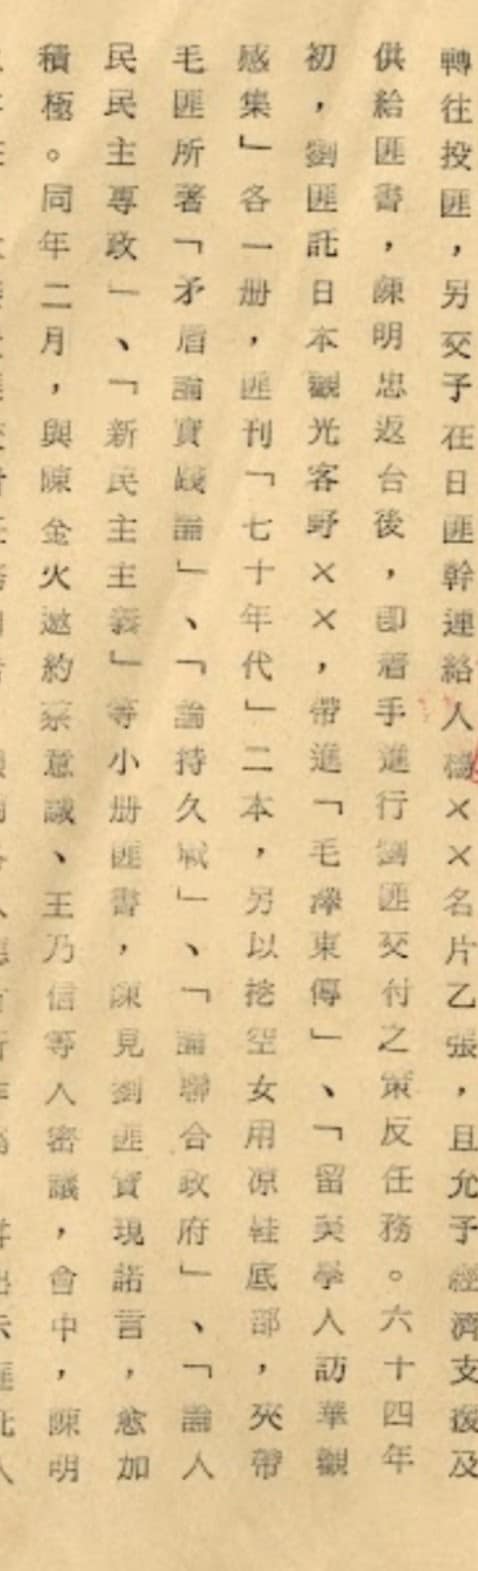 轉往投匪，另交子在日匪幹連絡人楊××名片乙張，且允予經濟支援及
供給匪書，陳明忠返台後，即着手進行劉匪交付之策反任務。六十四年
初，劉匪託日本觀光客野××，帶進「毛澤東傳」、「留美學人訪華觀
感集」各一册，匪刊「七十年代」二本，另以挖空女用凉鞋底部，夾帶
毛匪所著「矛盾論實踐論」、「論持久戰」、「論聯合政府」、「論人
民民主專政」、「新民主主義」等小册匪書，陳見劉匪實現諾言，愈加
積極。同年二月，與陳金火邀約蔡意誠、王乃信等人密議，會中，陳明